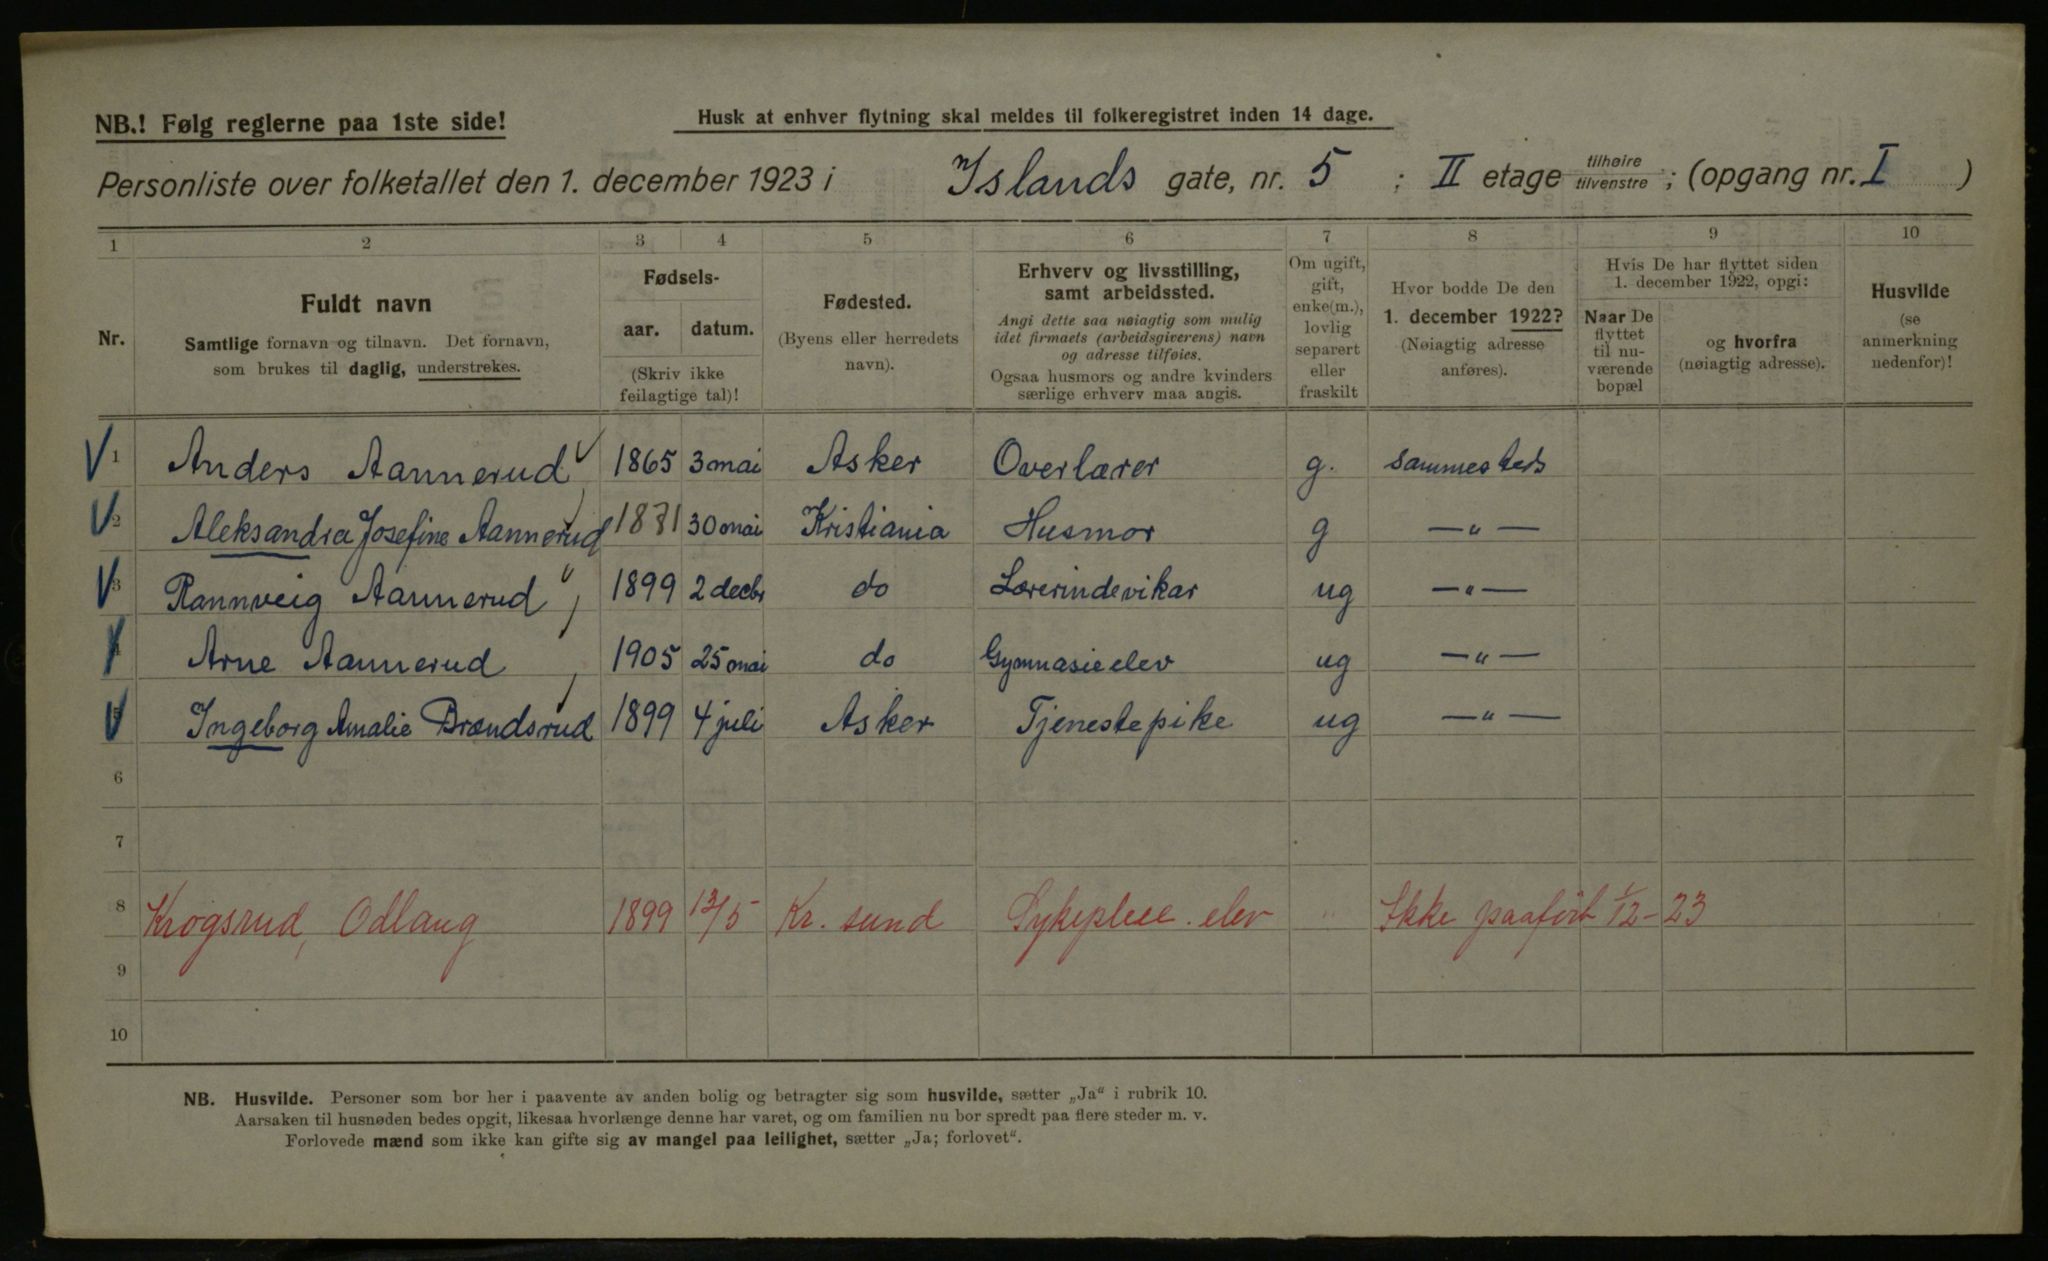 NB.! Følg reglerne paa 1ste side!
Husk at enhver flytning skal meldes til folkeregistret inden 14 dage.
Personliste over folketallet den 1. december 1923 i Islands gate, nr. 5 ; II etage tilhøire tilvenstre ; (opgang nr. I )
1 2 3 4 5 6 7 8 9 10
Nr.
Fuldt navn
Samtlige fornavn og tilnavn. Det fornavn,
som brukes til daglig, understrekes.
Fødsels-
aar. datum.
(Skriv ikke
feilagtige tal)!
Fødested.
(Byens eller herredets
navn).
Erhverv og livsstilling,
samt arbeidssted.
Angi dette saa nøiagtig som mulig
idet firmaets (arbeidsgiverens) navn
og adresse tilføies.
Ogsaa husmors og andre kvinders
særlige erhverv maa angis.
Om ugift,
gift,
enke(m.),
lovlig
separert
eller
fraskilt
Hvor bodde De den
1. december 1922?
(Nøiagtig adresse
anføres).
Hvis De har flyttet siden
1. december 1922, opgi:
Naar De
flyttet
til nu-
værende
bopæl
og hvorfra
(nøiagtig adresse).
Husvilde
(se
anmerkning
nedenfor)!
1 Anders Aannerud 1865 3 mai Asker Overlærer g. sammesteds
2 Aleksandra Josefine Aannerud 1871 30 mai Kristiania Husmor g —"—
3 Rannveig Aannerud 1899 2 decbr do Lærerindevikar ug —"—
4 Arne Aannerud 1905 25 mai do Gymnasieelev ug —"—
5 Ingeborg Amalie Brændsrud 1899 4 juli Asker Tjenestepike ug —"—
6
7
8 Krogsrud, Odlaug 1899 13/5 Kr. sund Sykepleie. elev " Ikke paaført 1/12-23
9
10
NB. Husvilde. Personer som bor her i paavente av anden bolig og betragter sig som husvilde, sætter „Ja“ i rubrik 10.
Aarsaken til husnøden bedes opgit, likesaa hvorlænge denne har varet, og om familien nu bor spredt paa flere steder m. v.
Forlovede mænd som ikke kan gifte sig av mangel paa leilighet, sætter „Ja; forlovet“.